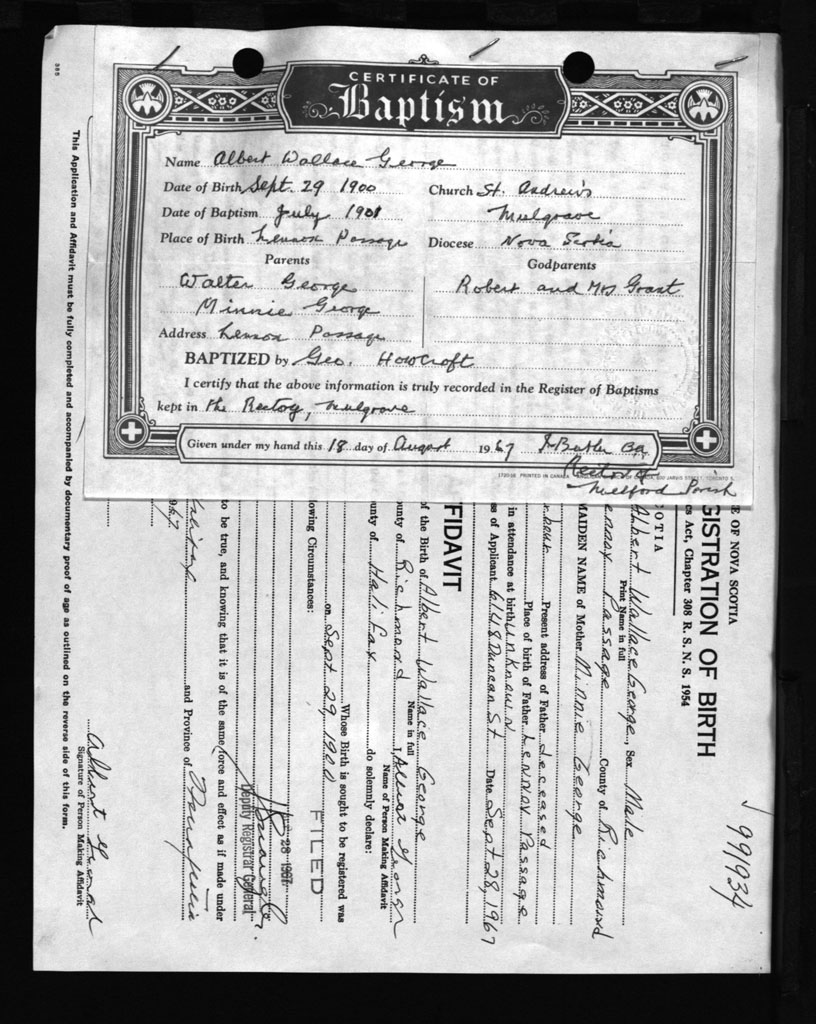 CERTIFICATE OF
Baptism
Name Albert Wallace George
Date of Birth Sept. 29 1900
Church St. Andrew's
Mulgrave
Date of Baptism July 1901
Place of Birth Lennox Passage
Diocese Nova Scotia
Parents
Godparents
Walter George
Robert and Mrs Grant
Minnie George
Address Lennox Passage
BAPTIZED by Geo. Howcroft
I certify that the above information is truly recorded in the Register of Baptisms
kept in the Rectory, Mulgrave
Given under my hand this 18 day of August 1967
Rector of
Melford Parish
1720-58 PRINTED IN CANADA
E OF NOVA SCOTIA
GISTRATION OF BIRTH
es Act, Chapter 308 R. S. N. S. 1954
√ 991934
COTIA
Albert Wallace George, Sex Male
Print Name in full
ennox Passage County of Richmond
MAIDEN NAME of Mother Minnie George
Present address of Father deceased
Place of birth of Father Lennox Passage
in attendance at birth unknown
ss of Applicant 6148 Duncan St Date Sept 28, 1967
FIDAVIT
of the Birth of Albert Wallace George
Name in full
ounty of Richmond I, Albert George
Name of Person Making Affidavit
ounty of Halifax do solemnly declare:
Whose Birth is sought to be registered was
on Sept 29, 1900
lowing Circumstances:
FILED
28 1967
Deputy Registrar General
to be true, and knowing that it is of the same force and effect as if made under
and Province of Nova Scotia
967
Albert George
Signature of Person Making Affidavit
This Application and Affidavit must be fully completed and accompanied by documentary proof of age as outlined on the reverse side of this form.